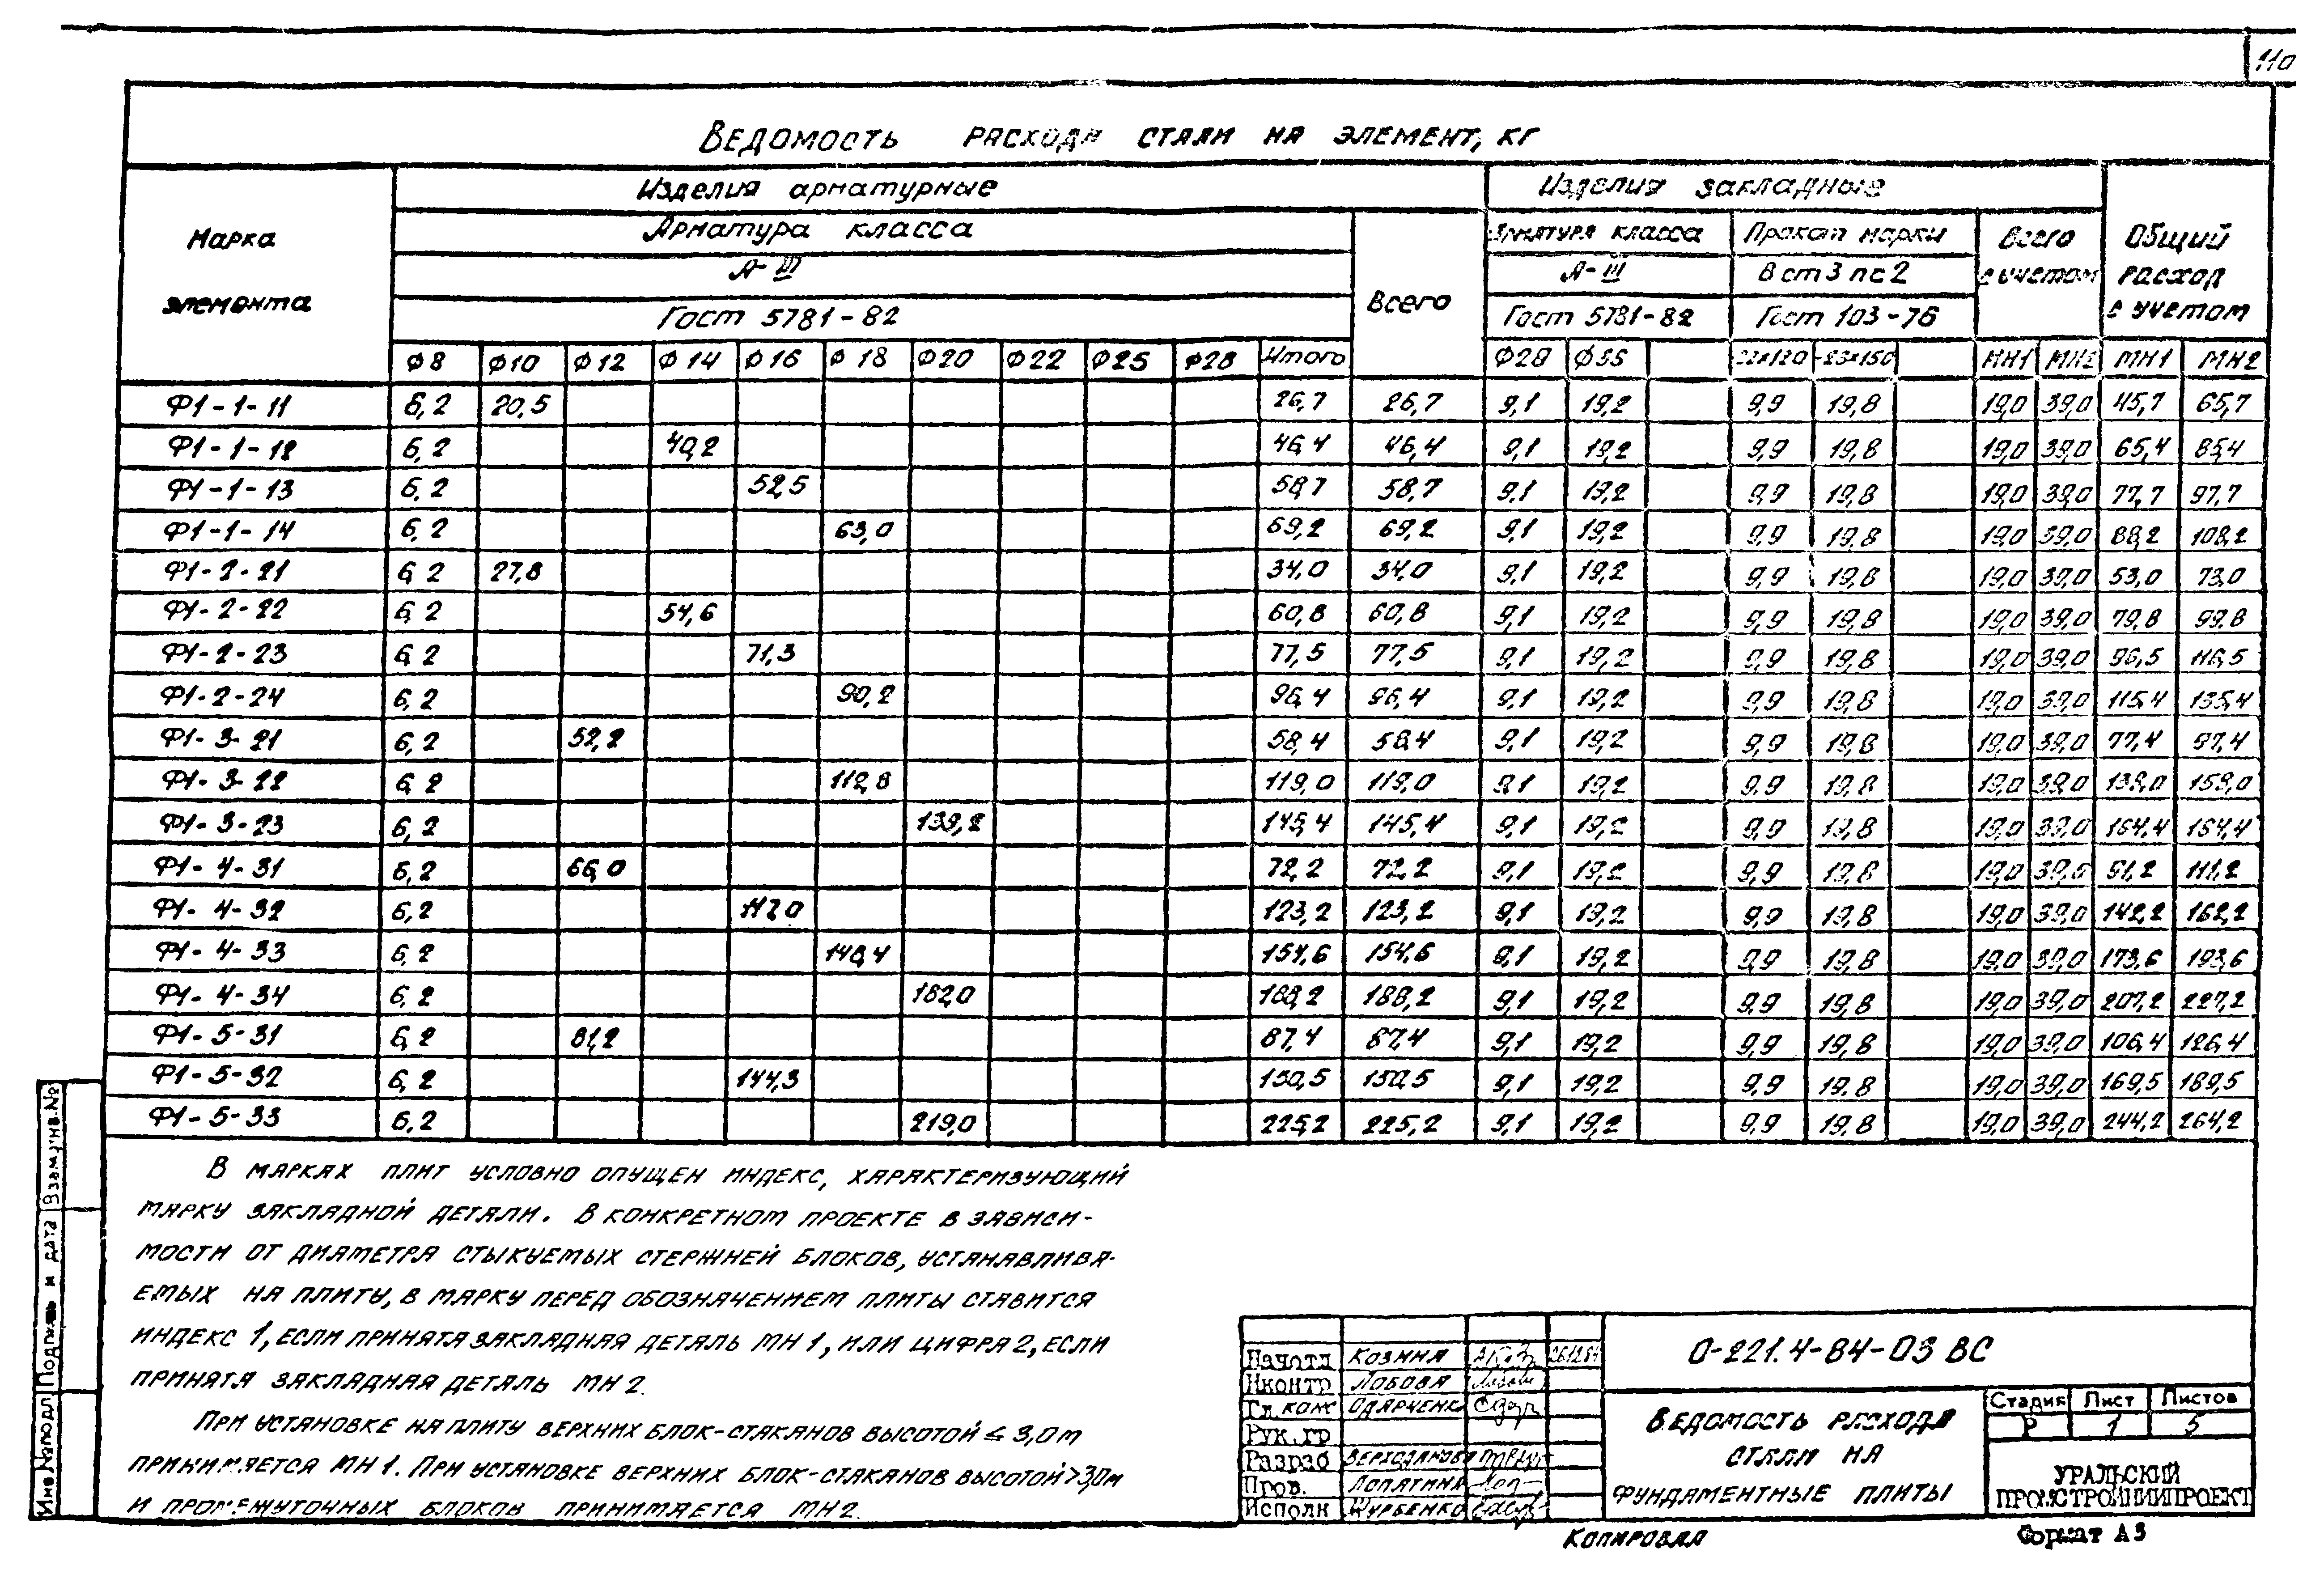 110
Ведомость расхода стали на элемент, кг
Марка элемента
Изделия арматурные
Изделия закладные
Общий расход с учетом
Арматура класса
Всего
Арматура класса
Прокат марки
Всего с учетом
А-III
А-III
Вст3пс2
Гост 5781-82
Гост 5781-82
Гост 103-76
Ф8 Ф10 Ф12 Ф14 Ф16 Ф18 Ф20 Ф22 Ф25 Ф28 Итого Ф28 МН1 МН2 МН1 МН2
Ф1-1-11 6,2 20,5 26,7 26,7 9,1 19,2 9,9 19,8 19,0 39,0 45,7 65,7
Ф1-1-12 6,2 40,2 46,4 46,4 9,1 19,2 9,9 19,8 19,0 39,0 65,4 85,4
Ф1-1-13 6,2 52,5 58,7 58,7 9,1 19,2 9,9 19,8 19,0 39,0 77,7 97,7
Ф1-1-14 6,2 63,0 69,2 69,2 9,1 19,2 9,9 19,8 19,0 39,0 88,2 108,2
Ф1-2-21 6,2 27,8 34,0 34,0 9,1 19,2 9,9 19,8 19,0 39,0 53,0 73,0
Ф1-2-22 6,2 54,6 60,8 60,8 9,1 19,2 9,9 19,8 19,0 39,0 79,8 99,8
Ф1-2-23 6,2 71,3 77,5 77,5 9,1 19,2 9,9 19,8 19,0 39,0 96,5 116,5
Ф1-2-24 6,2 90,2 96,4 96,4 9,1 19,2 9,9 19,8 19,0 39,0 115,4 135,4
Ф1-3-21 6,2 52,2 58,4 58,4 9,1 19,2 9,9 19,8 19,0 39,0 77,4 97,4
Ф1-3-22 6,2 112,8 119,0 119,0 9,1 19,2 9,9 19,8 19,0 39,0 138,0 158,0
Ф1-3-23 6,2 139,2 145,4 145,4 9,1 19,2 9,9 19,8 19,0 39,0 164,4 164,4
Ф1-4-31 6,2 66,0 72,2 72,2 9,1 19,2 9,9 19,8 19,0 39,0 91,2 111,2
Ф1-4-32 6,2 117,0 123,2 123,2 9,1 19,2 9,9 19,8 19,0 39,0 142,2 162,2
Ф1-4-33 6,2 148,4 154,6 154,6 9,1 19,2 9,9 19,8 19,0 39,0 173,6 193,6
Ф1-4-34 6,2 182,0 188,2 188,2 9,1 19,2 9,9 19,8 19,0 39,0 207,2 227,2
Ф1-5-31 6,2 81,2 87,4 87,4 9,1 19,2 9,9 19,8 19,0 39,0 106,4 126,4
Ф1-5-32 6,2 144,3 150,5 150,5 9,1 19,2 9,9 19,8 19,0 39,0 169,5 189,5
Ф1-5-33 6,2 219,0 225,2 225,2 9,1 19,2 9,9 19,8 19,0 39,0 244,2 264,2
В марках плит условно опущен индекс, характеризующий
марку закладной детали. В конкретном проекте в зависи-
мости от диаметра стыкуемых стержней блоков, устанавлива-
емых на плиту, в марку перед обозначением плиты ставится
индекс 1, если принята закладная деталь МН1, или цифра 2, если
принята закладная деталь МН2.
При установке на плиту верхних блок-стаканов высотой ≤ 3,0м
принимается МН1. При установке верхних блок-стаканов высотой >3,0м
и промежуточных блоков принимается МН2.
Инв №подл Подпись и дата Взам.инв.№
Начотд Козина 26.12.84
Нконтр Лобова
Гл.конс Одарченко
Рук.гр
Разраб
Пров. Лопатина
Исполн Журбенко
0-221.4-84-03 ВС
Ведомость расхода
стали на
фундаментные плиты
Стадия Лист Листов
Р 1 5
УРАЛЬСКИЙ
ПРОМСТРОЙНИИПРОЕКТ
Копировал
Формат А3